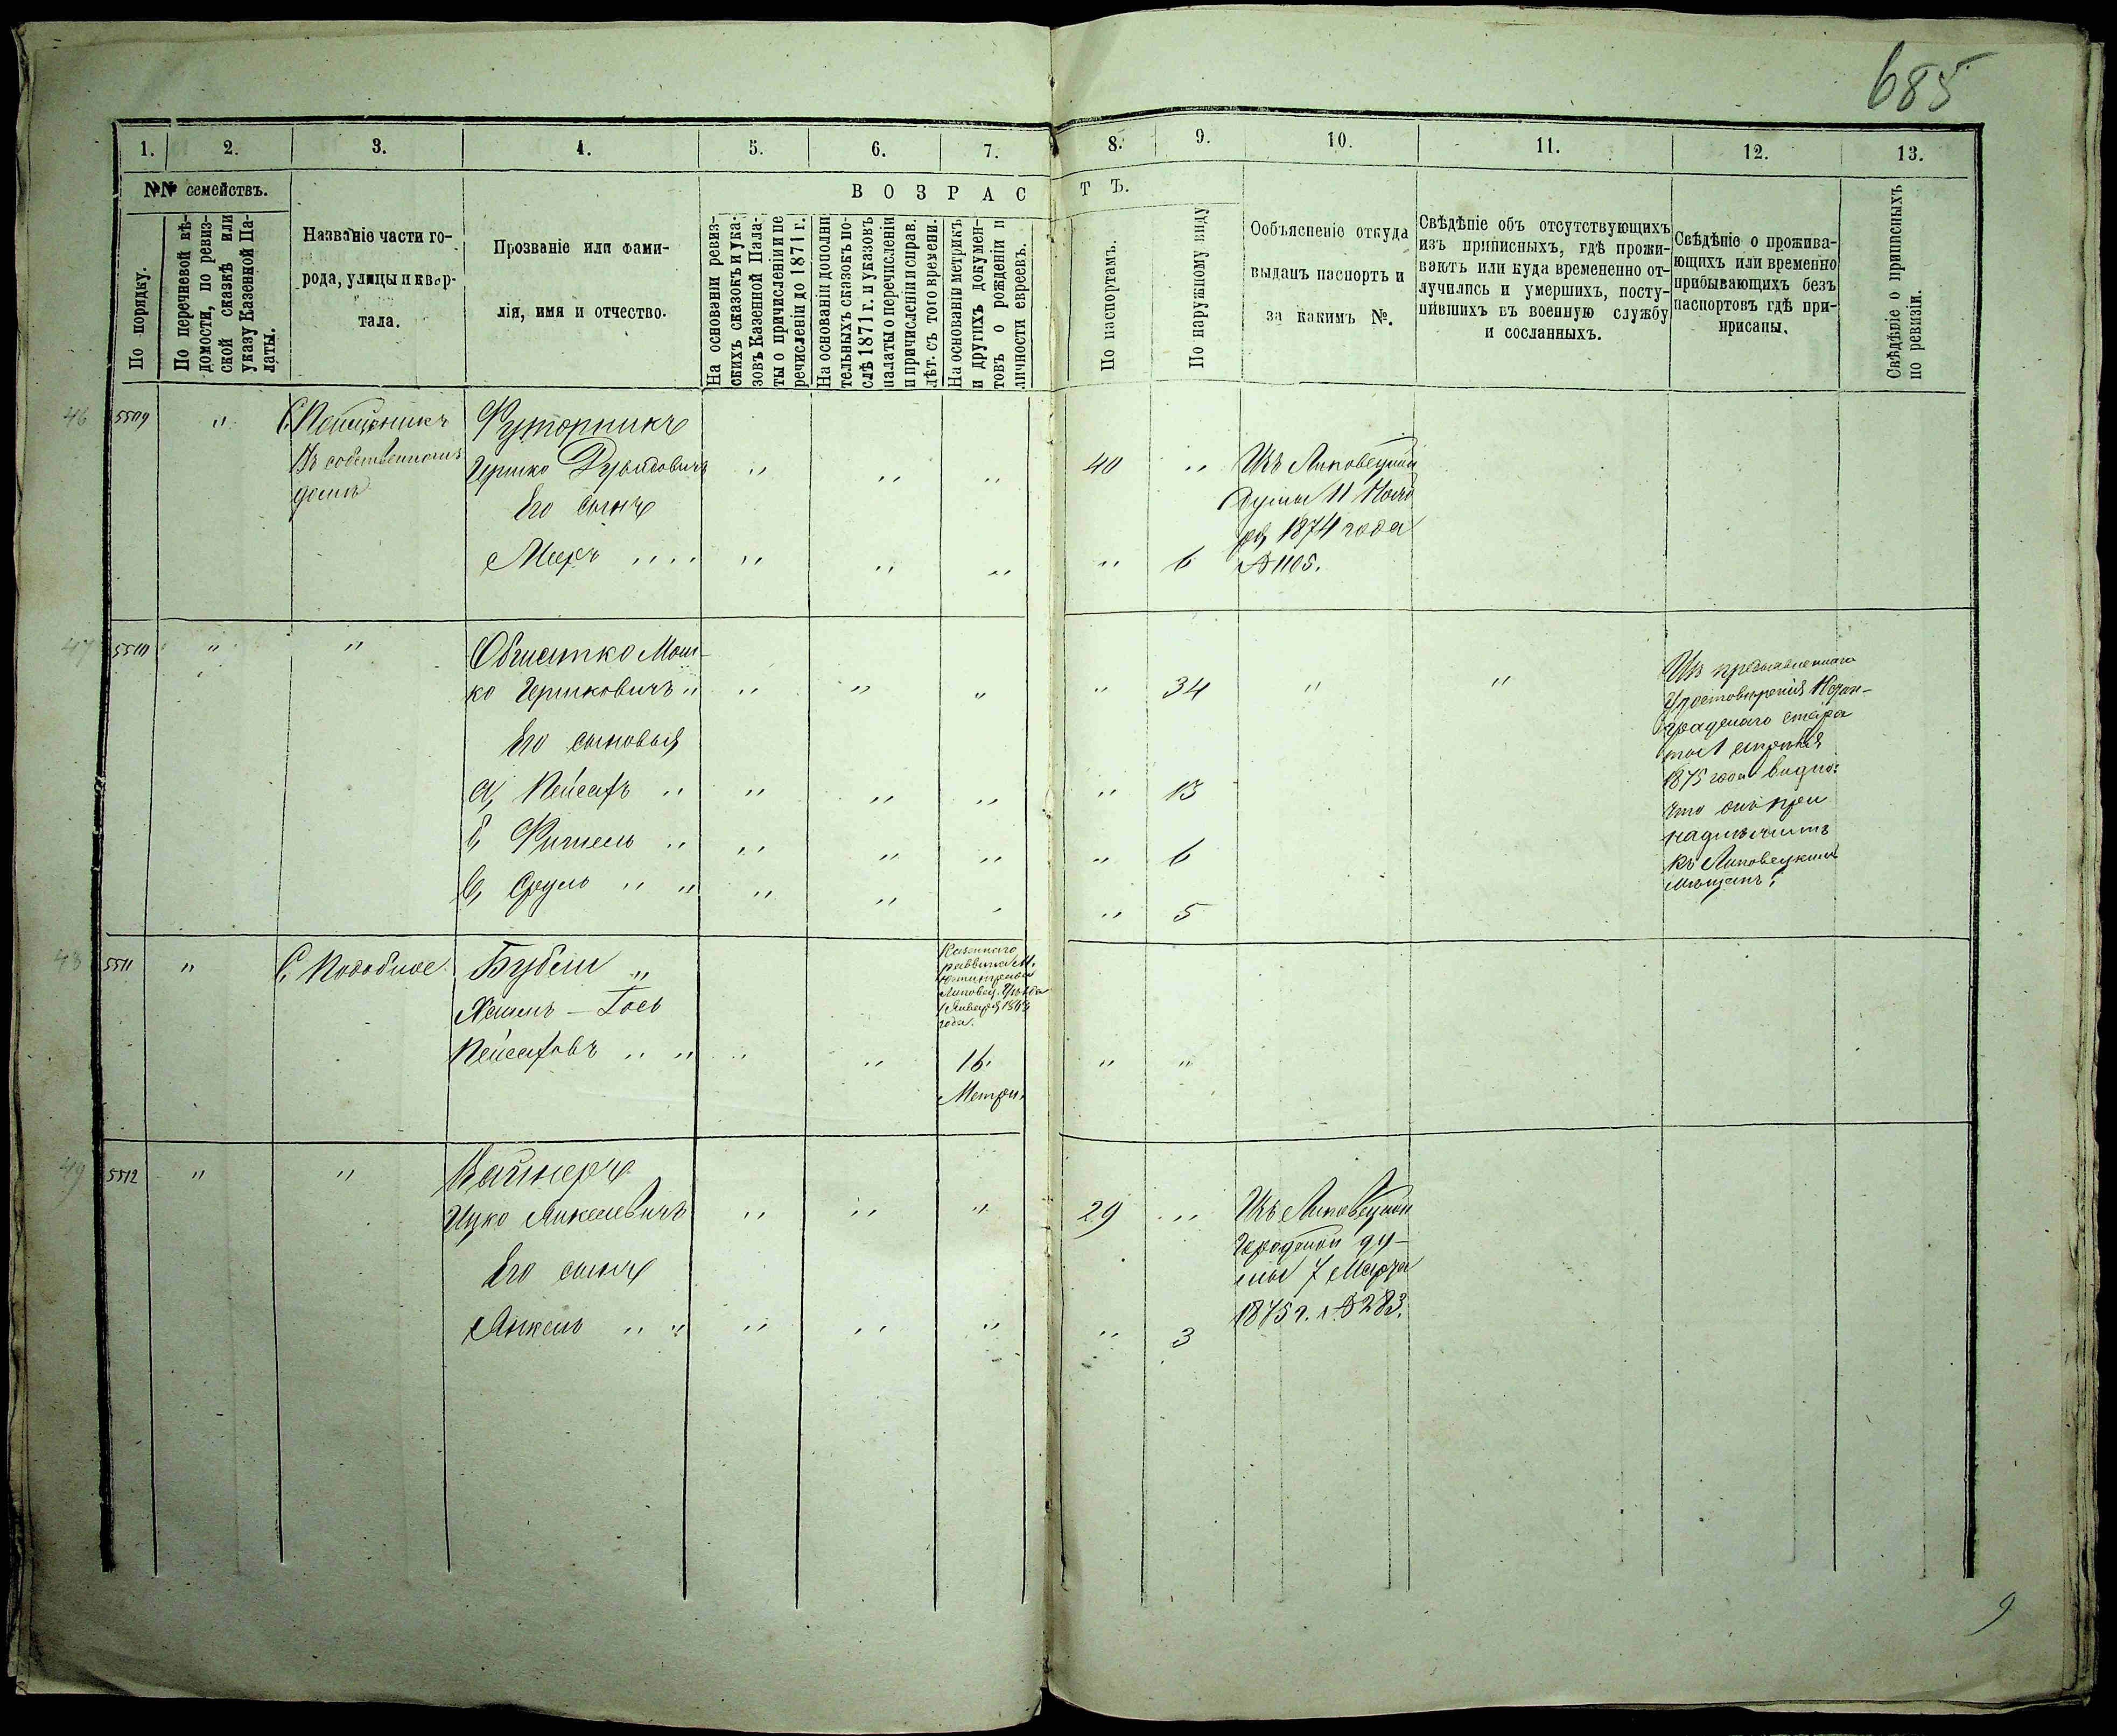 685
1. 2. 3. 4. 5. 6. 7. 8. 9. 10. 11. 12. 13.
№№ семействъ.
В О З Р А С Т Ъ.
По порядку.
По перечневой вѣ-
домости, по ревиз-
ской сказкѣ или
указу Казенной Па-
латы.
Названіе части го-
рода, улицы и квар-
тала.
Прозваніе или фами-
лія, имя и отчество.
На основаніи ревиз-
скихъ сказокъ и ука-
зовъ Казенной Пала-
ты о причисленіи и пе
речисленіи до 1871 г.
На основаніи дополни
тельныхъ сказокъ по-
слѣ 1871 г. и указовъ
палаты о перечисленіи
и причисленіи и справ.
лѣт. съ того времени.
На основаніи метрикъ
и другихъ докумен-
товъ о рожденіи и
личности евреевъ.
По паспортамъ.
По наружному виду
Ообъясненіе откуда
выданъ паспортъ и
за какимъ №.
Свѣдѣніе объ отсутствующихъ
изъ приписныхъ, гдѣ прожи-
ваютъ или куда временно от-
лучились и умершихъ, посту-
пившихъ въ военную службу
и сосланныхъ.
Свѣдѣніе о прожива-
ющихъ или временно
прибывающихъ безъ
паспортовъ гдѣ при-
писаны.
Свѣдѣніе о приписныхъ
по ревизіи.
46 5509 " С.
Въ собственномъ
домѣ
Футорникъ
Гершко Дувидовичъ " " " 40 "
Его сынъ
Мееръ " " " " " " 6
Изъ Липовецкой
Думы 11 Нояб
ря 1874 года
№ 1105.
47 5510 " "
Мош-
ко Гершковичъ " " " " " 34 " "
Его сыновья
а, Пейсахъ " " " " " 13
б, Фишель " " " " " 6
в, Сруль " " " " " " 5
Изъ предъявленнаго
Удостовѣренія
старо
1875 года видно:
что онъ при
надлежитъ
къ Липовецкимъ
мѣщанъ.
48 5511 " С. Подобное
Бубеш "
Хаимъ – Іось
Пейсаховъ " " " " 16. " "
Казеннаго
раввина
Липовец.
года.
Метри.
49 5512 " "
Вайнеръ
Ицко Янкелевичъ " " " 29 "
Его сынъ
Янкель " " " " " " 3
Изъ Липовецкой
Городской ду-
мы 7 Марта
1875 г. № 283.
9